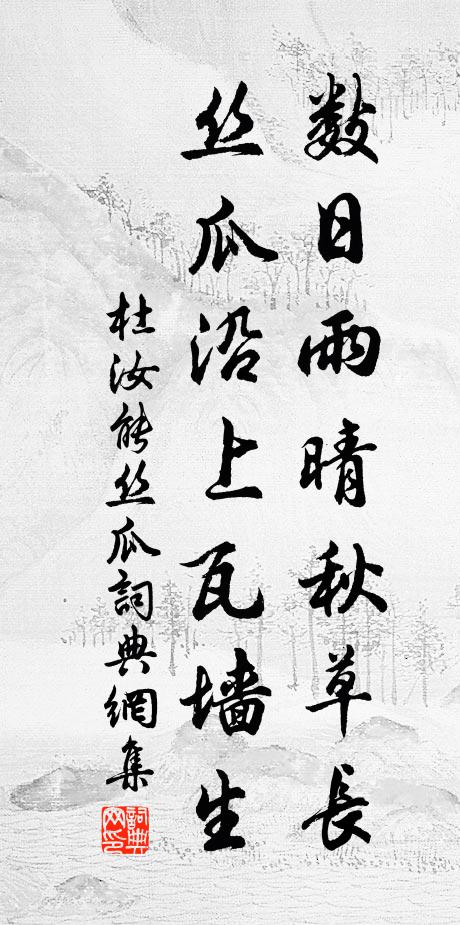 数日雨晴秋草長
丝瓜沿上瓦墙生
杜汝能丝瓜詞典網集
詞典
网印